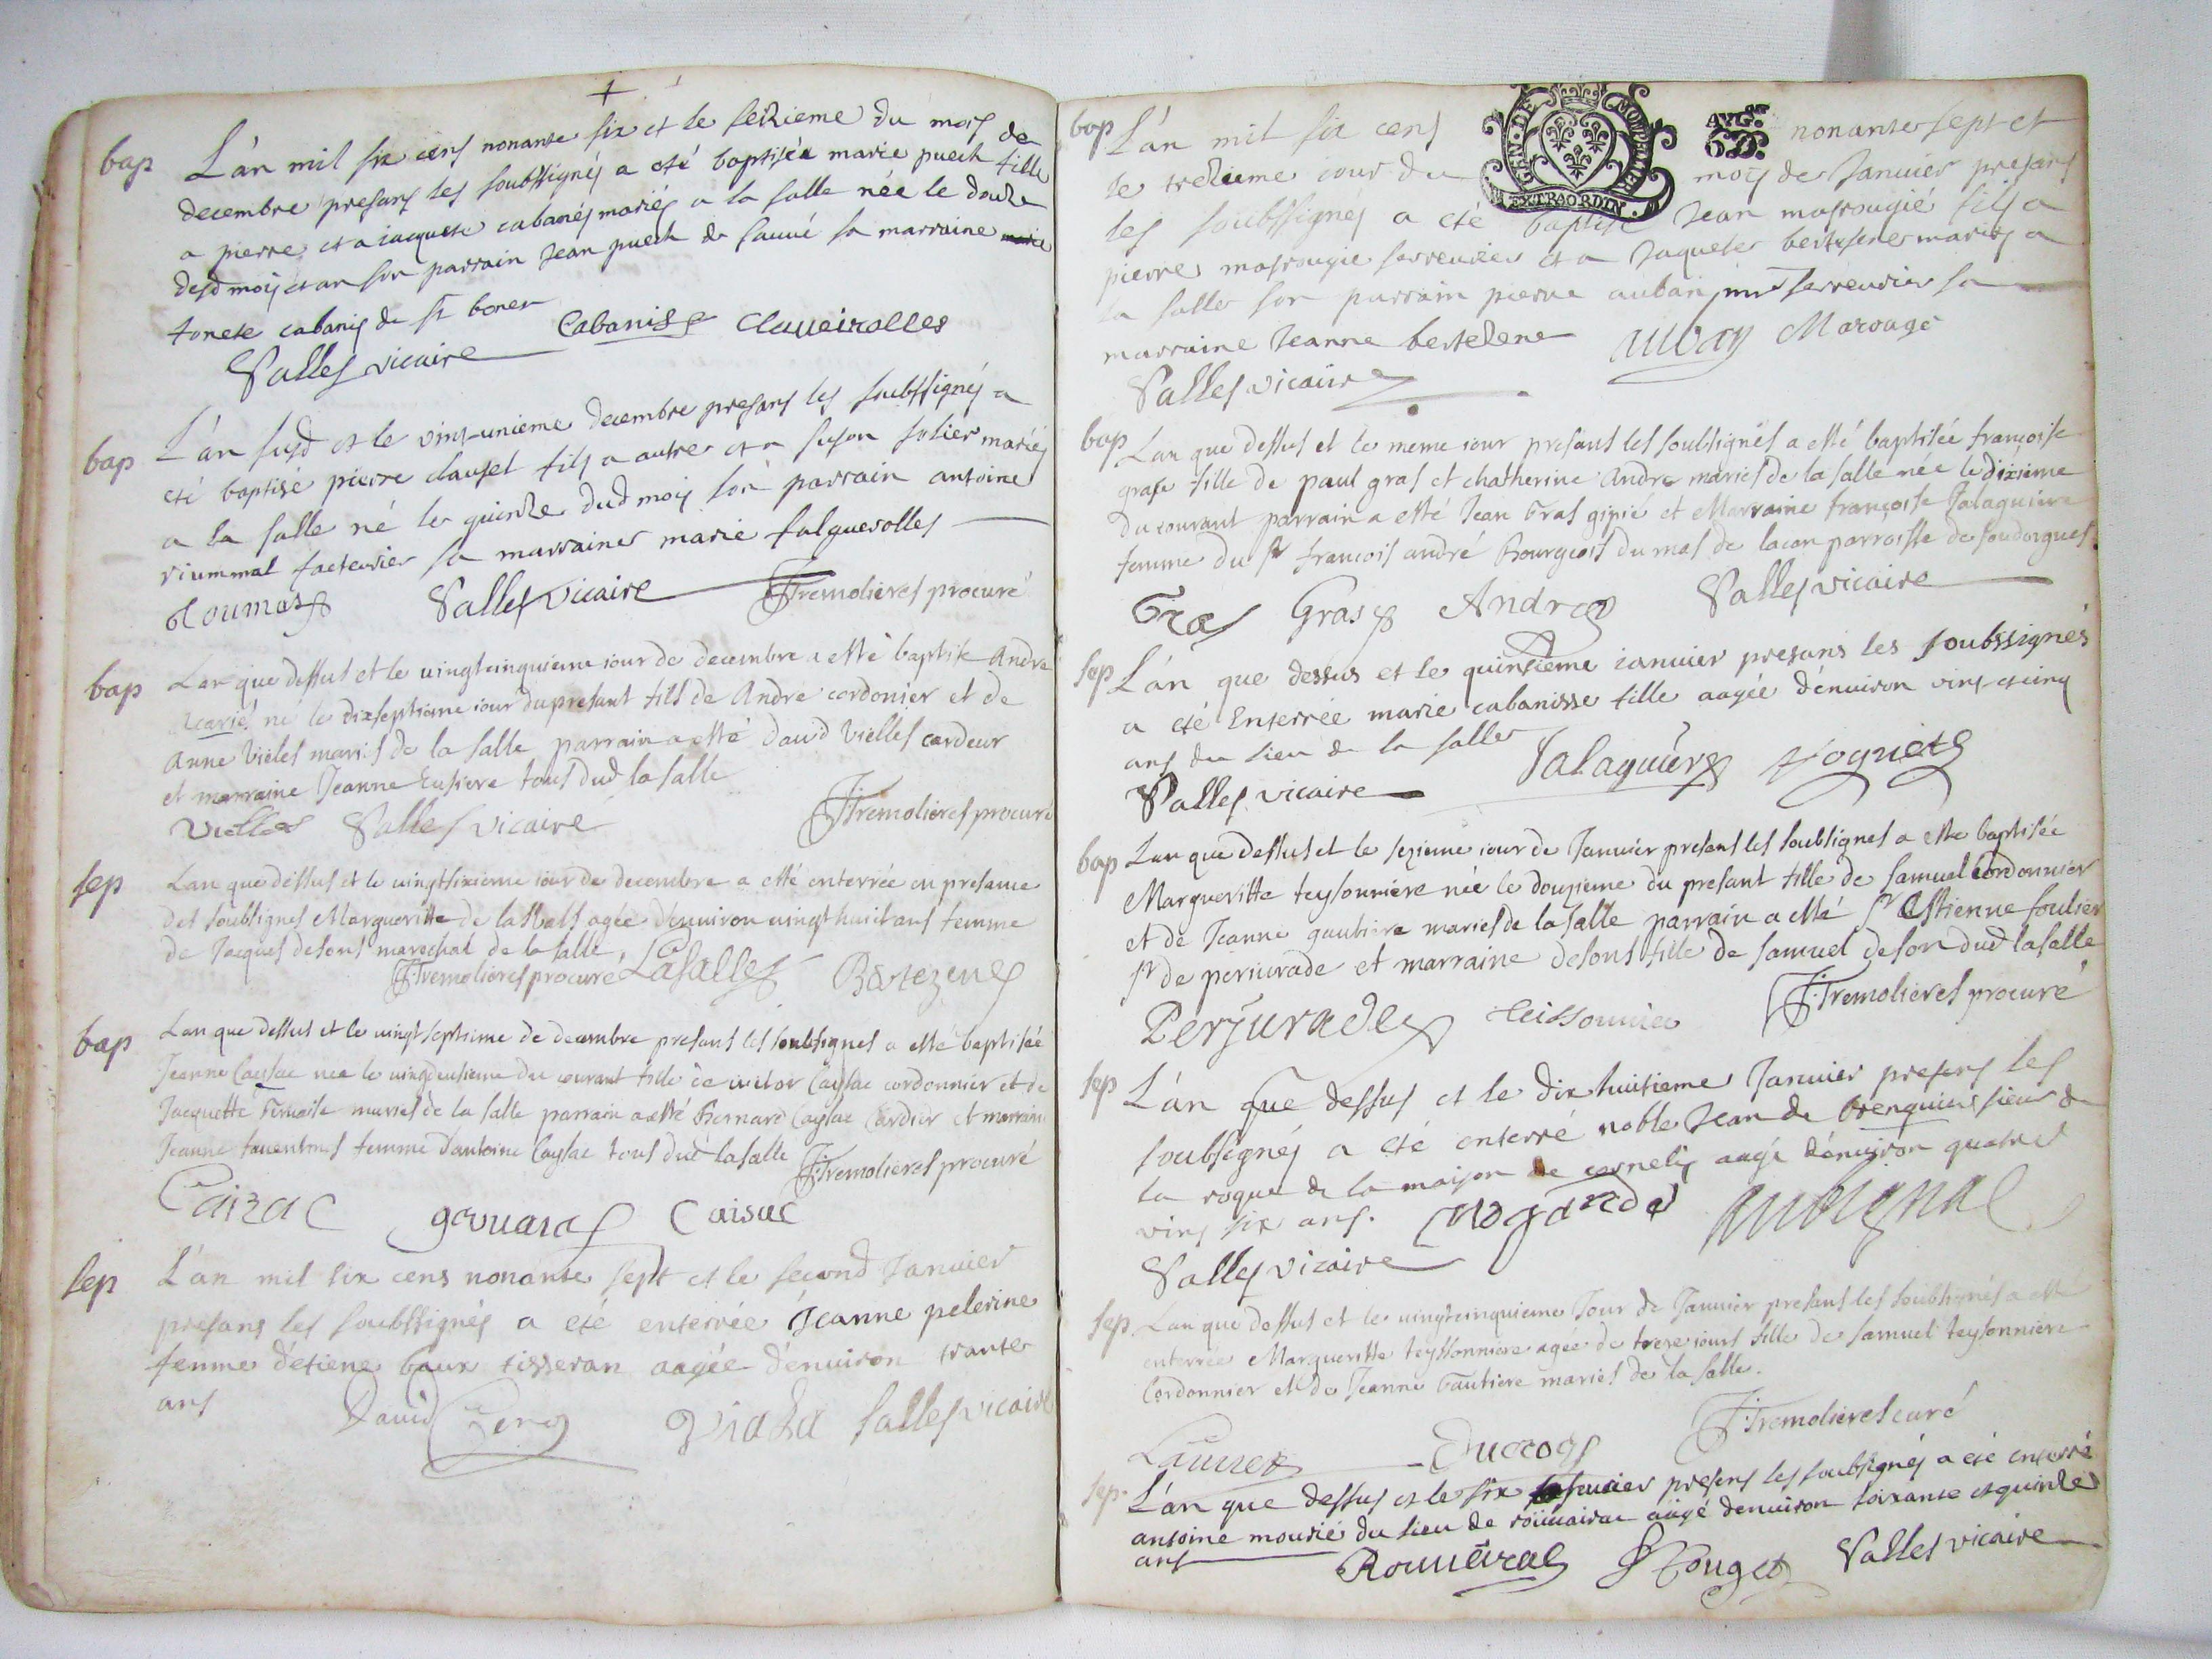 bap L'an mil six cens nonante six et le seizieme du mois de
decembre presans les soubssignés a eté baptisée marie puech fille
a pierre et a iacquete cabanés mariés a la salle née le douze
desd mois et an son parrain Jean puech de sauvé sa marraine marie
tonete cabanis de st bonet
Cabaniss Claueirolles
Salles vicaire
bap L'an susd et le vint-unieme decembre presans les soubssignés a
eté baptisé pierre clausel fils a autre et a suson solier mariés
a la salle né le quinze dud mois son parrain antoine
riummal facturier sa marraine marie falguerolles
doumas Salles vicaire F Tremolieres procuré
bap Lan que dessus et le uingtcinquieme iour de decembre a esté baptise Andre
né le dixseptieme iour du presant fils de Andre cordonier et de
Anne Vieles mariés de la salle parrain a esté david Vielles cardeur
et marraine Jeanne tous dud la salle
Vielles Salles vicaire F Tremolieres procuré
sep Lan que dessus et le uingtsixieme iour de decembre a esté enterrée en presance
des soubsignes Margueritte de agée denuiron uingt huict ans femme
de Jacques desons mareschal de la salle
F Tremolieres procuré Lasalles Bertezenes
bap Lan que dessus et le uingt septieme de decembre presans les soubsignes a esté baptisée
Jeanne Caysac née le uingdeusieme du courant fille de uictor Caysac cordonnier et de
Jacquette mariés de la salle parrain a esté Bernard Caysac Cardeur et marraine
Jeanne femme dantoine Caysac tous dud lasalle F Tremolieres procuré
Caizac Caisac
sep L'an mil six cens nonante sept et le second Januier
presans les soubssignés a eté enterrée Jeanne pelerine
femme d'etiene baux tisseran aagée d'enuiron trante
ans
David Viala Salles vicaire
GEN. DE MONTPELLIER EXTRAORDIN.
bap L'an mil six cens nonante sept et
le trezieme iour du mois de Januier presans
les soubssignés a eté baptisé Jean masrougié fils a
pierre masrougié serreurier et a Jaquete bertesene mariés a
la salle son parrain pierre auban serreurier sa
marraine Jeanne bertezene auban Marougé
Salles vicaire
bap Lan que dessus et le meme iour presans les soubsignés a esté baptisée françoise
grase fille de paul gras et chatherine Andre mariés de la salle née le dixieme
du courant parrain a esté Jean Gras gipié et Marraine françoise Jalaguiere
femme du sr francois andré Bourgeois du mas de lacan parroisse de soudorgues.
Gras Gras Andre Salles vicaire
sep L'an que dessus et le quinzieme ianuier presans les soubssignés
a eté Enterrée marie cabanisse fille aagée d'enuiron vint et cinq
ans du lieu de la salle
Salles vicaire Jalaguier Noguet
bap Lan que dessus et le sezieme iour de Januier presens les soubsignes a esté baptisée
Margueritte teysonniere née le douzieme du presant fille de samuel Cordonnier
et de Jeanne gautiere mariés de la salle parrain a esté sr Estienne soulier
sr de periurade et marraine desons fille de samuel deson dud lasalle
Perjurade teissonniere F Tremolieres procuré
sep L'an que dessus et le dix huitieme Januier presens les
soubsignés a eté enterré noble Jean de sieur de
la roque de la maison de cornelis aagé d'enuiron quatre
vins six ans.
Salles vicaire
sep Lan que dessus et le uingtcinquieme Jour de Januier presans les soubsignés a esté
enterrée Margueritte teyssonniere agée de treze iours fille de samuel teysonniere
Cordonnier et de Jeanne Gautiere mariés de la salle.
Ducros F Tremolieres curé
sep L'an que dessus et le six presens les soubsignés a eté enterré
antoine mourié du lieu de aagé denuiron soixante et quinze
ans Salles vicaire